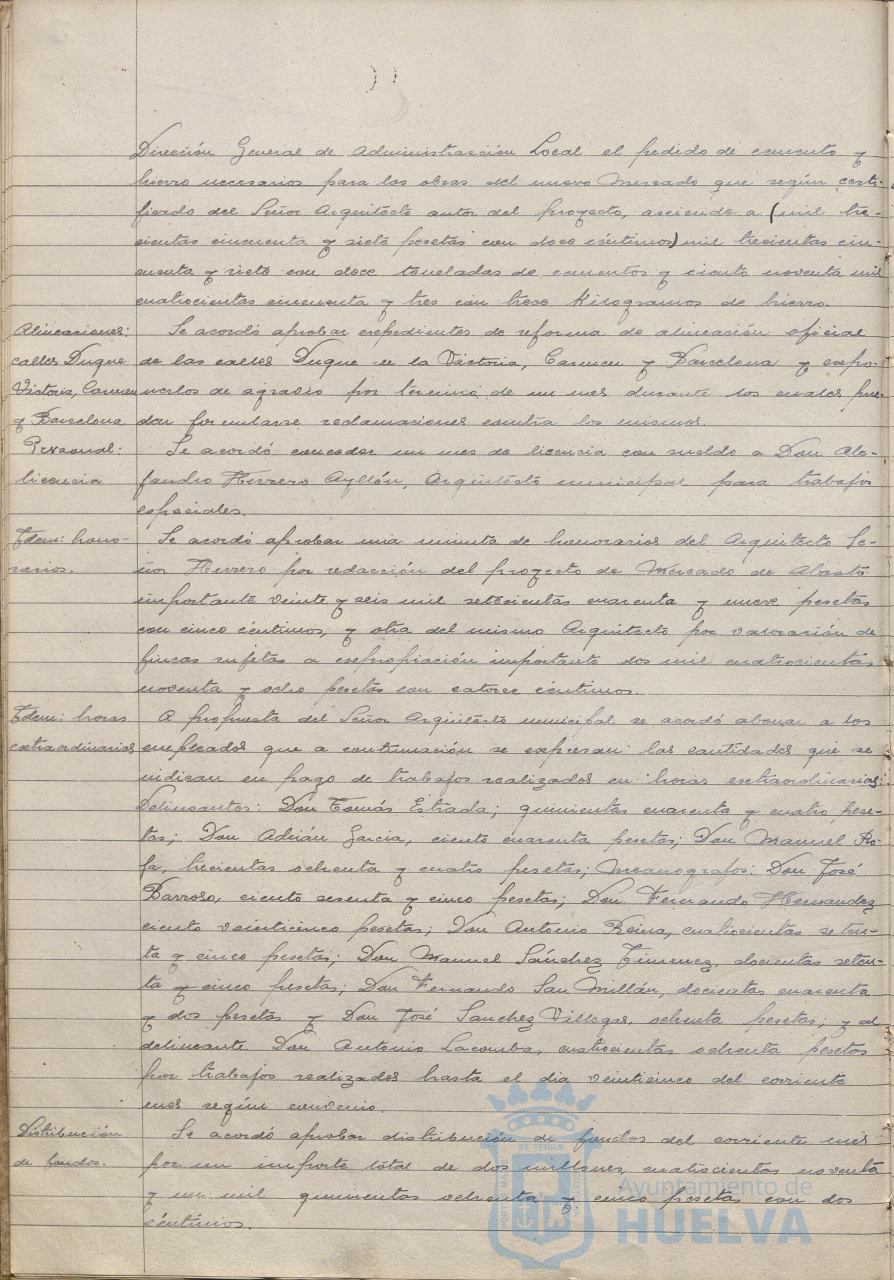 Dirección General de Administración Local el pedido de cemento y
hierro necesarios para las obras del nuevo Mercado que según certi-
ficado del Señor Arquitecto autor del proyecto, asciende a (mil tre-
cientas cincuenta y siete pesetas con doce céntimos) mil trecientas cin-
cuenta y siete con doce toneladas de cementos y ciento noventa mil
cuatrocientas cincuenta y tres con trece Kilogramos de hierro.
Alineaciones:
calles Duque
Victoria, Carmen
y Barcelona
Se acordó aprobar expedientes de reforma de alineación oficial
de las calles Duque de la Victoria, Carmen y Barcelona y expo-
nerlos de agravio por termino de un mes durante los cuales pue-
den formularse reclamaciones contra los mismos.
Personal:
licencia
Se acordó conceder un mes de licencia con sueldo a Don Ale-
jandro Herrero Ayllón, Arquitecto municipal para trabajos
especiales.
Idem: hono-
rarios.
Se acordó aprobar una minuta de honorarios del Arquitecto Se-
ñor Herrero por redacción del proyecto de Mercado de Abasto
importante veinte y seis mil setecientas cuarenta y nueve pesetas
con cinco céntimos, y otra del mismo Arquitecto por valoración de
fincas sujetas a expropiación importante dos mil cuatrocientas
noventa y ocho pesetas con catorce céntimos.
Idem: horas
extraordinarias
A propuesta del Señor Arquitecto municipal se acordó abonar a los
empleados que a continuación se expresan las cantidades que se
indican en pago de trabajos realizados en horas extraordinarias:
Delineantes: Don Tomás Estrada; quinientas cuarenta y cuatro pese-
tas; Don Adrián Garcia, ciento cuarenta pesetas; Don Manuel Ro-
fa, trecientas ochenta y cuatro pesetas; Mecanografos: Don José
Barroso, ciento sesenta y cinco pesetas; Don Fernando Hernandez
ciento veinticinco pesetas; Don Antonio Reina, cuatrocientas seten-
ta y cinco pesetas; Don Manuel Sánchez Jimenez, docientas seten-
ta y cinco pesetas; Don Fernando San Millán, docientas cuarenta
y dos pesetas y Don José Sanchez Villegas, ochenta pesetas; y al
delineante Don Antonio Lacomba, cuatrocientas ochenta pesetas
por trabajos realizados hasta el dia veinticinco del corriente
mes según convenio.
Distribución
de fondos.
Se acordó aprobar distribución de fondos del corriente mes
por un importe total de dos millones, cuatrocientas noventa
y un mil quinientas ochenta y cinco pesetas con dos
céntimos.
Ayuntamiento de
HUELVA